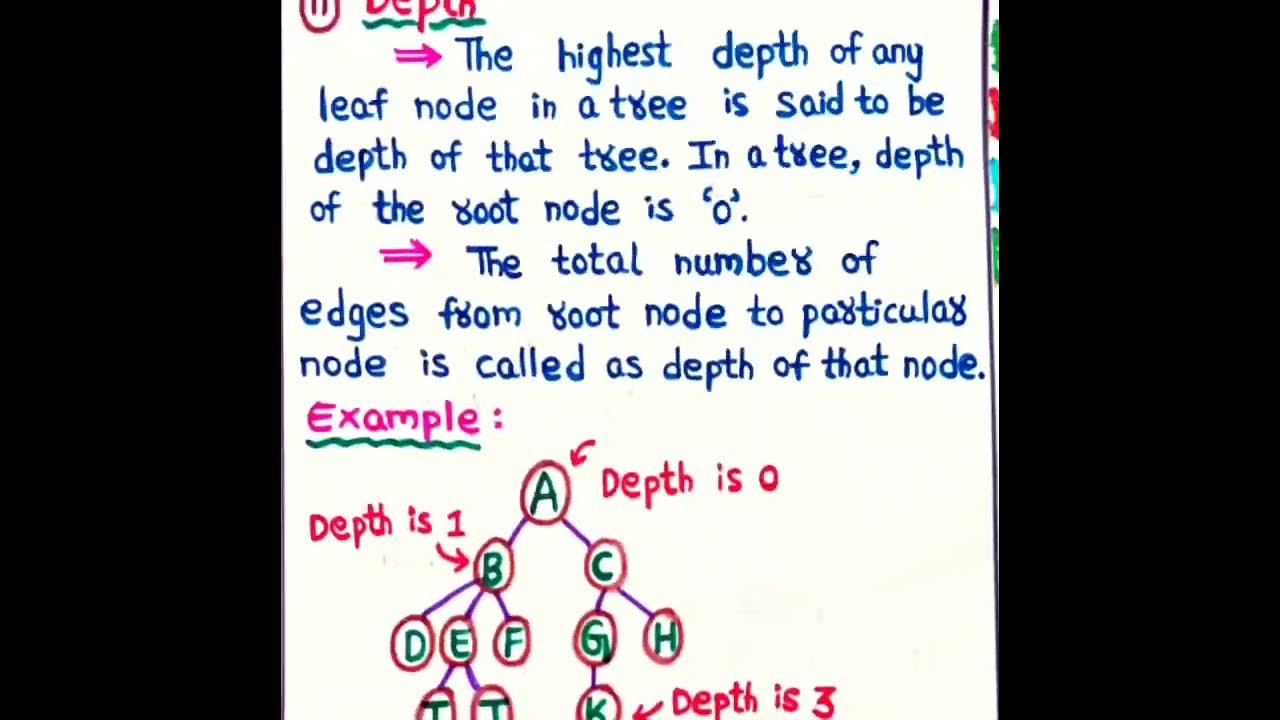 11 Depth
⇒ The highest depth of any
leaf node in a tree is said to be
depth of that tree. In a tree, depth
of the root node is ‘0’.
⇒ The total number of
edges from root node to particular
node is called as depth of that node.
Example :
A Depth is 0
Depth is 1
B C
D E F G H
K Depth is 3